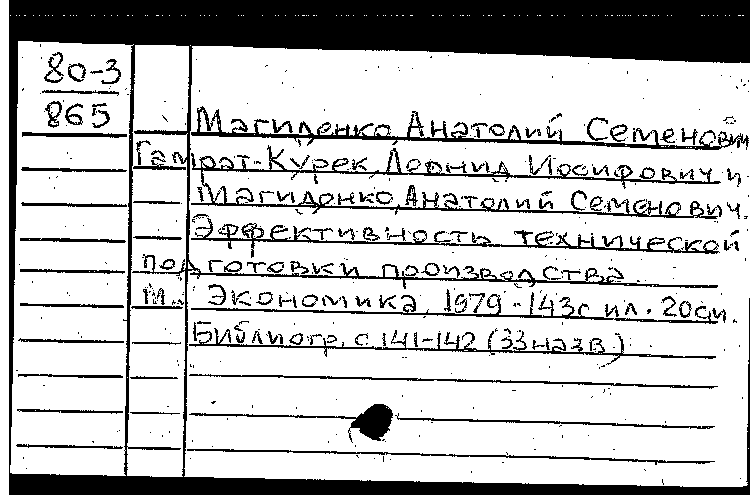 80-3
865
Магиденко, Анатолий Семенович
Гамрат-Курек, Леонид Иосифович и
Магиденко, Анатолий Семенович.
Эффективность технической
подготовки производства.
М., Экономика, 1979 - 143с ил. 20см.
Библиогр. с 141-142 (33 назв.)